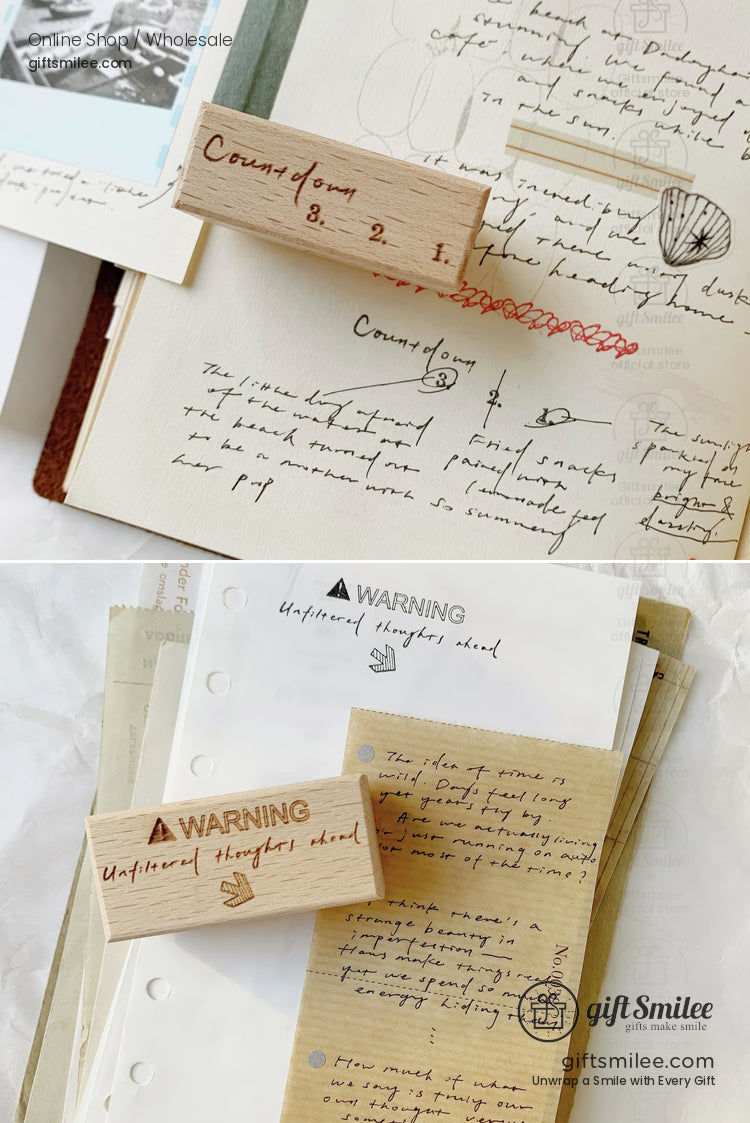 Online Shop / Wholesale
giftsmilee.com
beach at
stunning. We found a
café where we enjoyed
and snacks while
in the sun.
It was incredibly
and we
there until dusk
before heading home
Countdown
3. 2. 1.
Countdown
3. 2. 1.
The little dog afraid
of the water at
the beach turned out
to be a mother with
her pup
Fried snacks
paired with
lemonade feel
so summery
The sunlight
sparkled on
my face
bright &
dazzling.
gift Smilee
Giftsmilee
official store
WARNING
Unfiltered thoughts ahead
WARNING
Unfiltered thoughts ahead
The idea of time is
wild. Days feel long
yet years fly by.
Are we actually living
or just running on auto
for most of the time?
I think there's a
strange beauty in
imperfection —
flaws make things real
yet we spend so much
energy hiding them
How much of what
we say is truly our
own thought versus
TELEPHONE
gift Smilee
gifts make smile
giftsmilee.com
Unwrap a Smile with Every Gift